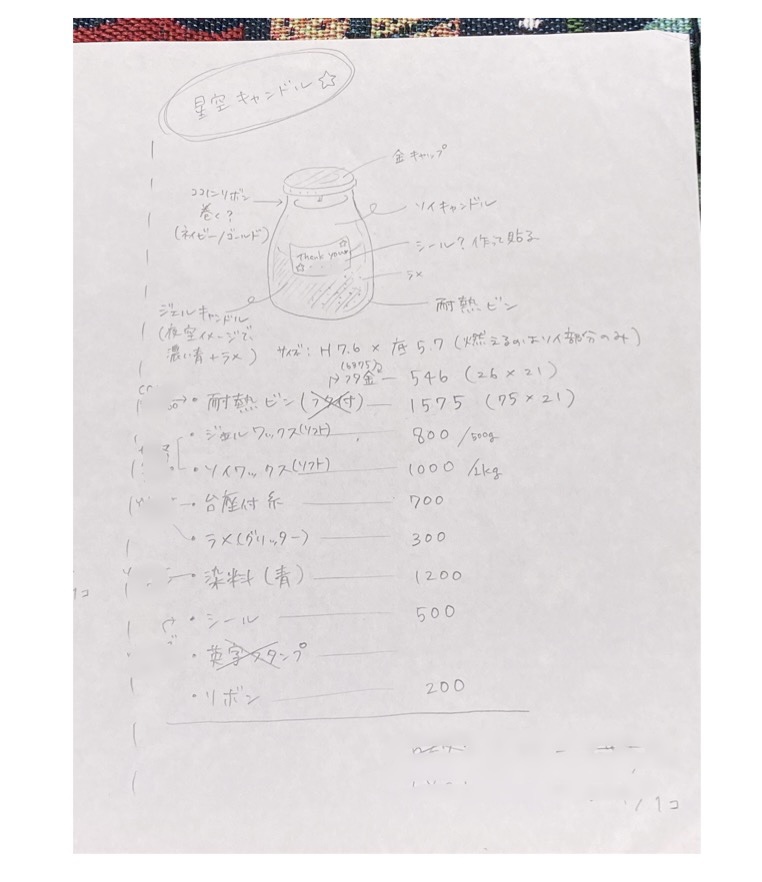 星空キャンドル☆
金キャップ
ココにリボン
巻く?
(ネイビー/ゴールド)
ソイキャンドル
シール?作って貼る
Thank you
ラメ
耐熱ビン
ジェルキャンドル
(夜空イメージで、
濃い青+ラメ)
サイズ: H7.6 × 底5.7 (燃えるのはソイ部分のみ)
フタ金 — 546 (26×21)
・耐熱ビン(フタ付) — 1575 (75×21)
・ジェルワックス(ソフト) 800/500g
・ソイワックス(ソフト) 1000/1kg
・台座付糸 700
・ラメ(グリッター) 300
・染料(青) 1200
・シール 500
・英字スタンプ
・リボン 200